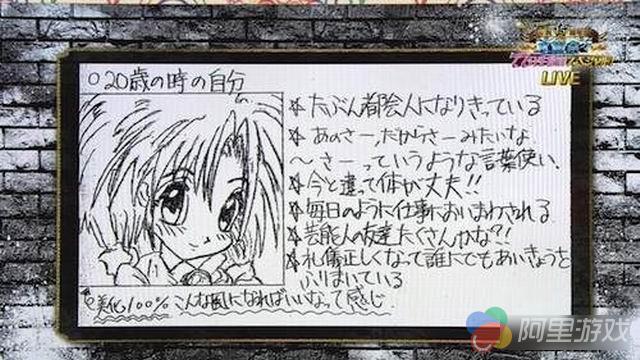 ○20歳の時の自分
LIVE
☆たぶん都会人になりきっている
☆あのさー,だからさーみたいな
〜さーっていうような言葉使い.
☆今と違って体が丈夫!!
☆毎日のように仕事においまわされる
☆芸能人の友達たくさんかな?!
☆礼儀正しくなって誰にでもあいきょうを
ふりまいている
美化100% こんな風になればいいなって感じ
阿里游戏